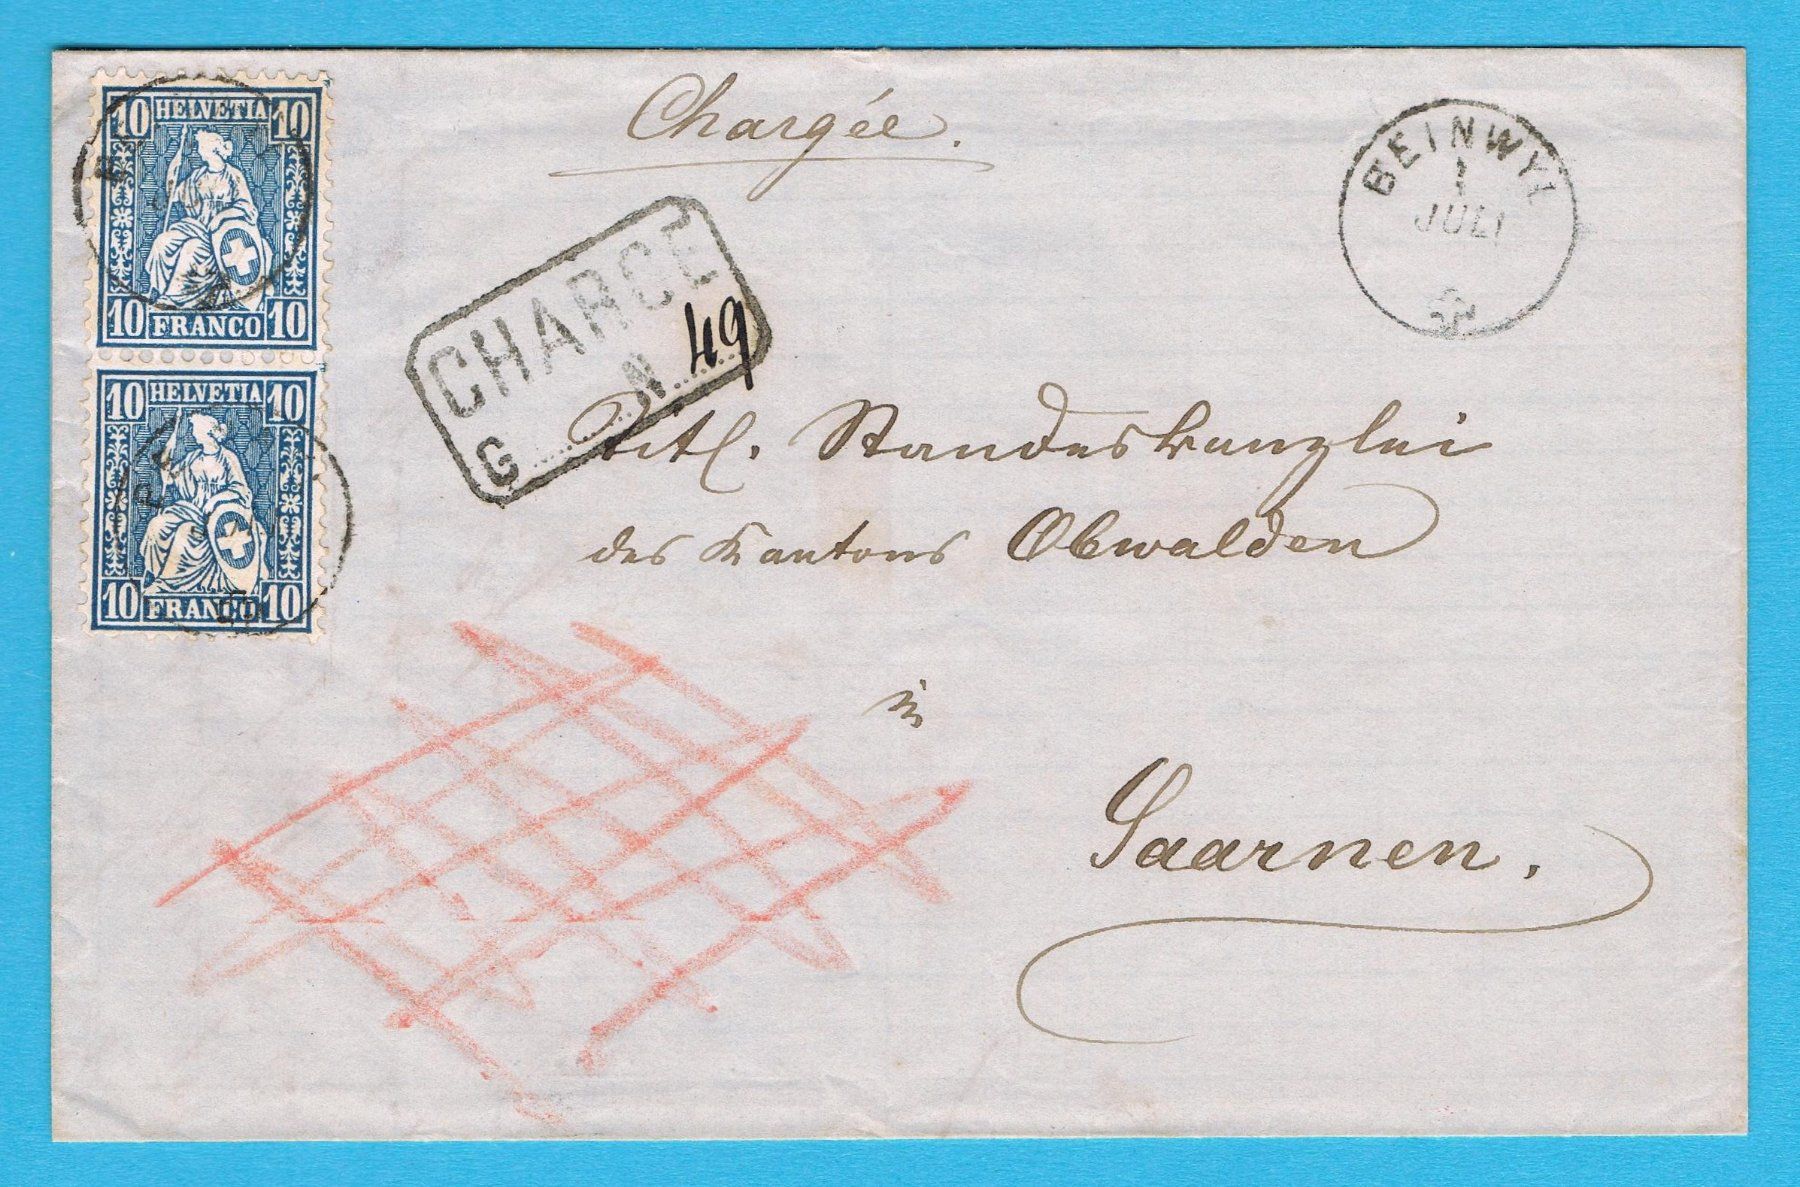 10 HELVETIA 10
10 FRANCO 10
10 HELVETIA 10
10 FRANCO 10
Chargée.
BEINWYL
1
JULI
CHARGE
G N 49
Titl. Standeskanzlei
des Kantons Obwalden
in
Saarnen.